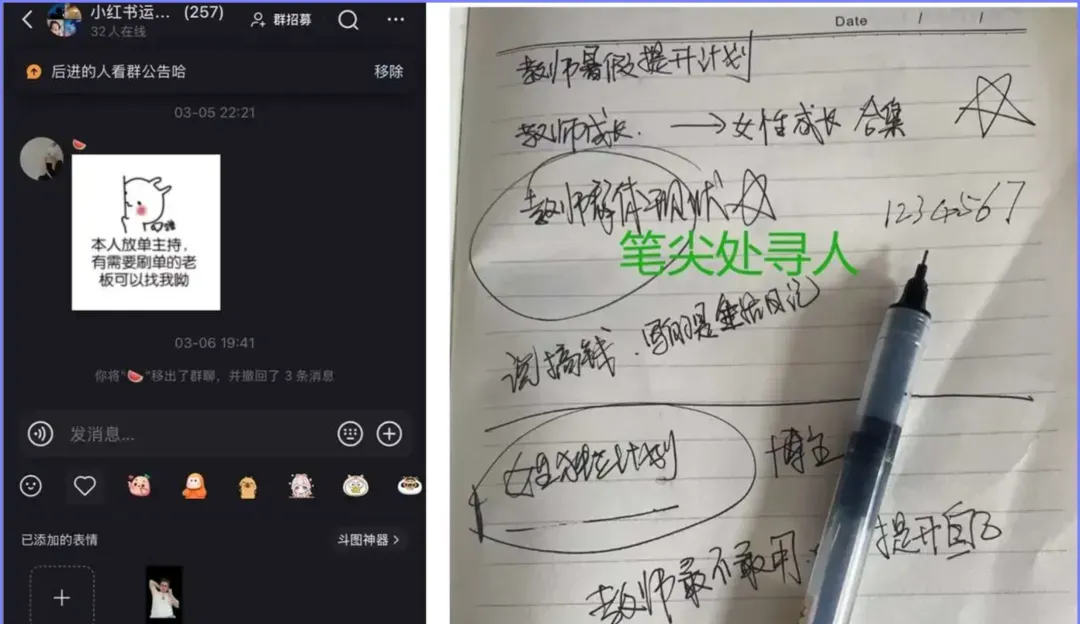 小红书运... (257)
32人在线
群招募
后进的人看群公告哈
移除
03-05 22:21
本人放单主持，
有需要刷单的老
板可以找我呦
03-06 19:41
你将"🍉"移出了群聊，并撤回了 3 条消息
发消息...
已添加的表情
斗图神器 >
Date / /
教师暑假提升计划
教师成长. → 女性成长 合集
教师群体现状
1234567
笔尖处寻人
搞钱.写的是生活日记
计划
博主
提升自己
教师敢不敢用